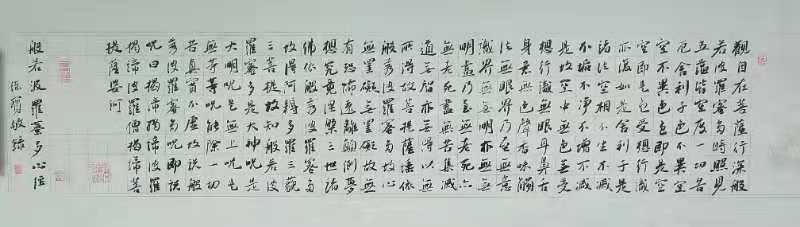 觀自在菩薩行深般
若波羅蜜多時照見
五蘊皆空度一切苦
厄舍利子色不異空
空不異色色即是空
空即是色受想行識
亦復如是舍利子是
諸法空相不生不滅
不垢不淨不增不減
是故空中無色無受
想行識無眼耳鼻舌
身意無色聲香味觸
法無眼界乃至無意
識界無無明亦無無
明盡乃至無老死亦
無老死盡無苦集滅
道無智亦無得以無
所得故菩提薩埵依
般若波羅蜜多故心
無罣礙無罣礙故無
有恐怖遠離顛倒夢
想究竟涅槃三世諸
佛依般若波羅蜜多
故得阿耨多羅三藐
三菩提故知般若波
羅蜜多是大神咒是
大明咒是無上咒是
無等等咒能除一切
苦真實不虛故說般
若波羅蜜多咒即說
咒曰揭諦揭諦波羅
揭諦波羅僧揭諦菩
提薩婆訶
般若波羅蜜多心經
敏錄